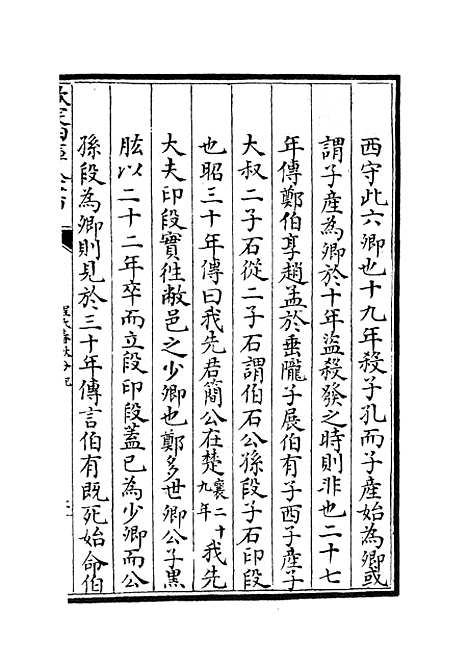 西守此六卿也十九年殺子孔而子產始為卿或
謂子產為卿於十年盜殺發之時則非也二十七
年傳鄭伯享趙孟於垂隴子展伯有子西子產子
大叔二子石從二子石謂伯石公孫段子石印段
也昭三十年傳曰我先君簡公在楚襄二十九年我先
大夫印段實往敝邑之少卿也鄭多世卿公子黑
肱以二十二年卒而立段印段蓋已為少卿而公
孫段為卿則見於三十年傳言伯有既死始命伯
欽定四庫全書
程氏春秋分記